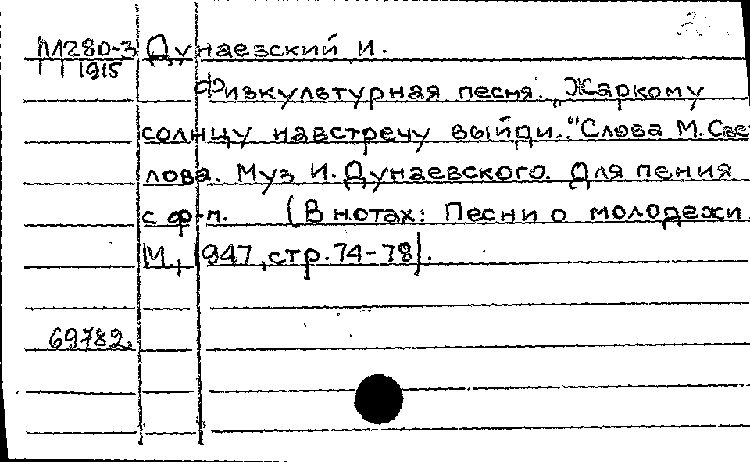 М280-3 Дунаевский И.
1915
Физкультурная песня. „Жаркому
солнцу навстречу выйди.." Слова М. Све
лова. Муз И. Дунаевского. Для пения
с ф-п. (В нотах: Песни о молодежи
М., 1947, стр. 74-78).
69782.